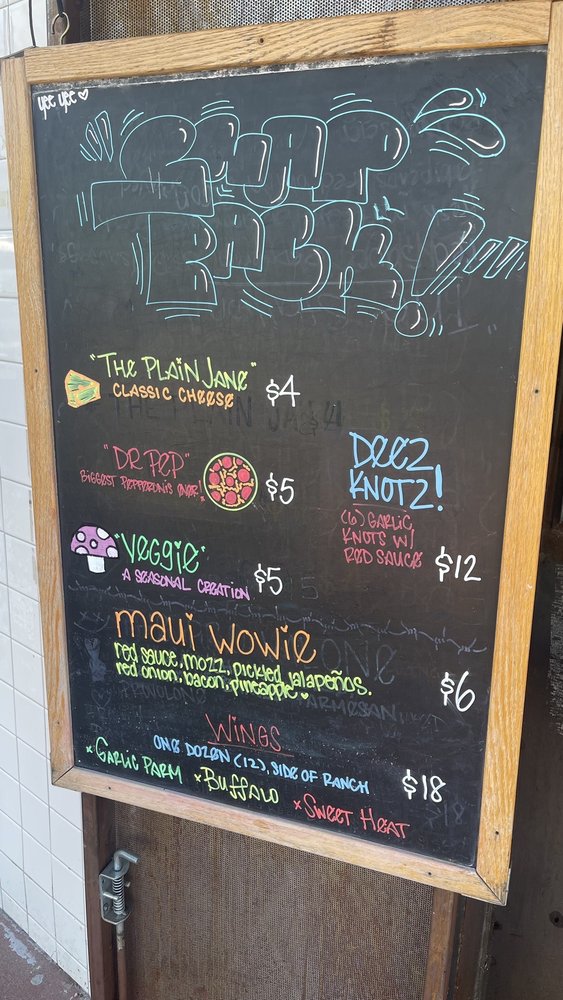 yee yee
SLAP
BACK!
"THE PLAIN JANE"
CLASSIC CHEESE
$4
"DR PEP"
BIGGEST PEPPERONIS EVER"
$5
DEEZ
KNOTZ!
(6) GARLIC
KNOTS W/
RED SAUCE
$12
"VEGGIE"
A SEASONAL CREATION
$5
maui wowie
red sauce, mozz, pickled jalapeños.
red onion, bacon, pineapple
$6
WINGS
ONE DOZEN (12), SIDE OF RANCH
$18
x GARLIC PARM x BUFFALO x SWEET HEAT